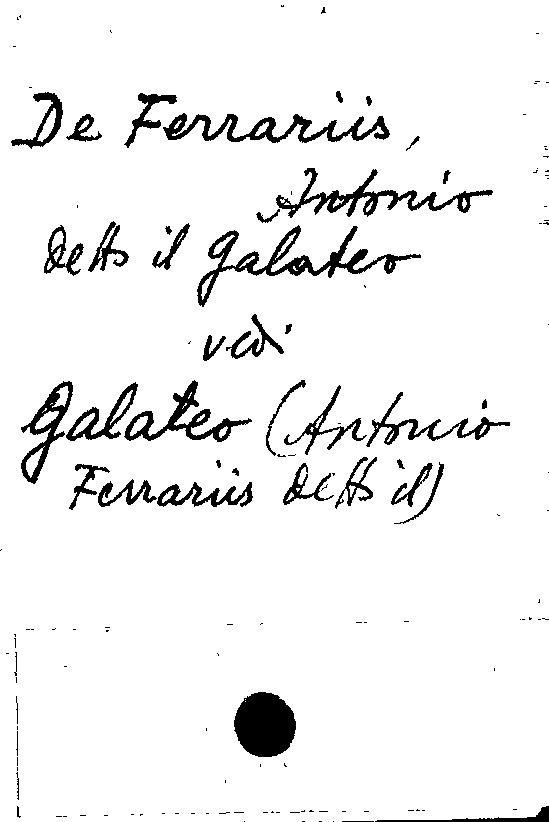 De Ferrariis,
Antonio
detto il Galateo
vedi
Galateo (Antonio
Ferrariis detto il)